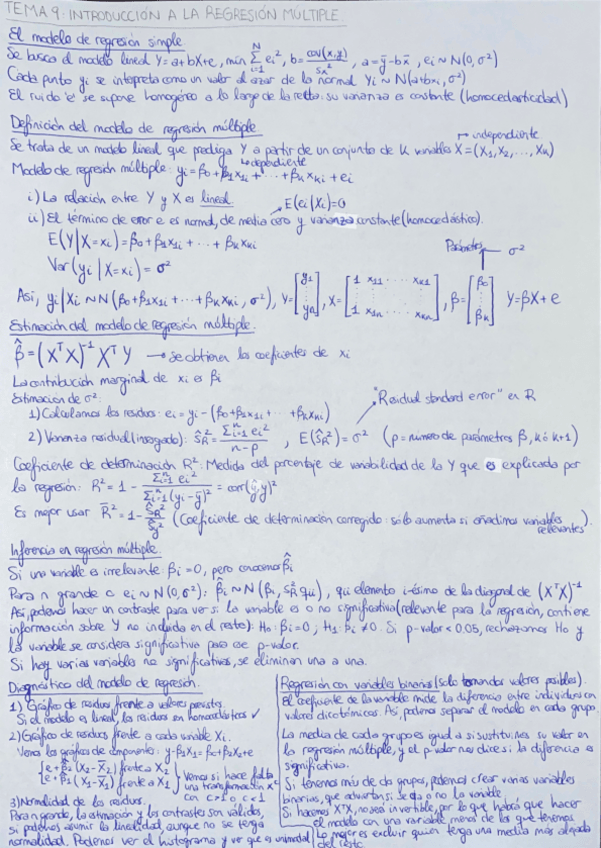 TEMA 9: INTRODUCCIÓN A LA REGRESIÓN MÚLTIPLE.
El modelo de regresión simple.
Se busca el modelo lineal Y=a+bX+e, min Σ_{i=1}^{N} ei², b = cov(x,y)/Sx², a = ȳ-bx̄, ei ~ N(0,σ²)
Cada punto yi se intepreta como un valor al azar de la normal Yi ~ N(a+bxi, σ²)
El ruido 'e' se supone homogéneo a lo largo de la recta: su varianza es constante (homocedasticidad)
Definición del modelo de regresión múltiple
independiente
Se trata de un modelo lineal que prediga Y a partir de un conjunto de K variables X = (X1, X2, ..., Xk)
dependiente
Modelo de regresión múltiple: yi = β0 + β1x1i + ... + βkxki + ei
i) La relación entre Y y X es lineal.
E(ei|Xi)=0
ii) El término de error e es normal, de media cero y varianza constante (homocedástico).
E(Y|X=xi) = β0 + β1x1i + ... + βkxki
Var(yi|X=xi) = σ²
Parámetros σ²
Así, yi|Xi ~ N(β0+β1x1i+...+βkxki, σ²), Y = [y1 ... yn], X = [1 x11 ... xk1 ... 1 x1n ... xkn], β = [β0 ... βk] Y=βX+e
Estimación del modelo de regresión múltiple.
β̂ = (XᵀX)⁻¹ XᵀY → se obtienen los coeficientes de xi
La contribución marginal de xi es βi
Estimación de σ²:
"Residual standard error" en R
1) Calculamos los residuos: ei = yi - (β0+β1x1i+ ... +βkxki)
2) Varianza residual (insesgada): ŜR² = Σ_{i=1}^{n} ei² / n-p, E(ŜR²) = σ² (p = numero de parámetros β, k ó k+1)
Coeficiente de determinación R²: Medida del porcentaje de variabilidad de la Y que es explicada por
la regresión: R² = 1 - Σ_{i=1}^{n} ei² / Σ_{i=1}^{n} (yi-ȳ)² = corr(ŷ,y)²
Es mejor usar R̄² = 1 - ŜR²/Ŝy² (Coeficiente de determinación corregido: sólo aumenta si añadimos variables relevantes).
Inferencia en regresión múltiple.
Si una variable es irrelevante βi = 0, pero conocemos β̂
Para n grande o ei ~ N(0,σ²): β̂i ~ N(βi, ŜR² qii), qii elemento i-ésimo de la diagonal de (XᵀX)⁻¹
Así, podemos hacer un contraste para ver si la variable es o no significativa (relevante para la regresión, contiene
información sobre Y no incluida en el resto): H0: βi=0; H1: βi≠0. Si p-valor < 0.05, rechazamos H0 y
la variable se considera significativa para ese p-valor.
Si hay varias variables no significativas, se eliminan una a una.
Diagnóstico del modelo de regresión.
1) Gráfico de residuos frente a valores previstos.
Si el modelo es lineal, los residuos son homocedásticos ✓
2) Gráfico de residuos frente a cada variable Xi.
Vemos los gráficos de componentes: y-β1X1 = β0+β2X2+e
{e + β̂2 (X2-X̄2) frente a X2
{e + β̂1 (X1-X̄1) frente a X1
Vemos si hace falta
una transformación xᶜ
con c>1 o c<1
3) Normalidad de los residuos.
Para n grande, la estimación y los contrastes son válidos,
si podemos asumir la linealidad, aunque no se tenga
normalidad. Podemos ver el histograma y ver que es unimodal
Regresión con variables binarias (solo tomando valores posibles).
El coeficiente de la variable mide la diferencia entre individuos con
valores dicotómicos. Así, podemos separar el modelo en cada grupo.
La media de cada grupo es igual a si sustituimos su valor en
la regresión múltiple, y el p-valor nos dice si la diferencia es
significativa.
Si tenemos más de dos grupos, podemos crear varias variables
binarias, que adviertan si se da o no la variable
Si hacemos XᵀX, no será invertible, por lo que habrá que hacer
el modelo con una variable menos de las que tenemos
Lo mejor es excluir quien tenga una media más alejada
del resto.